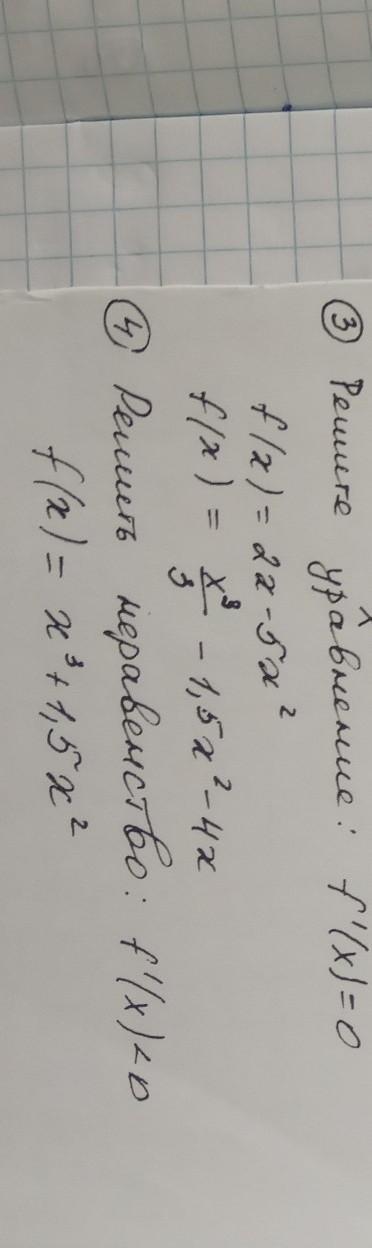 ③ Решите уравнение: f'(x)=0
f(x)=2x-5x²
f(x) = x³/3 - 1,5x²-4x
④ Решить неравенство: f'(x)<0
f(x)= x³+1,5x²